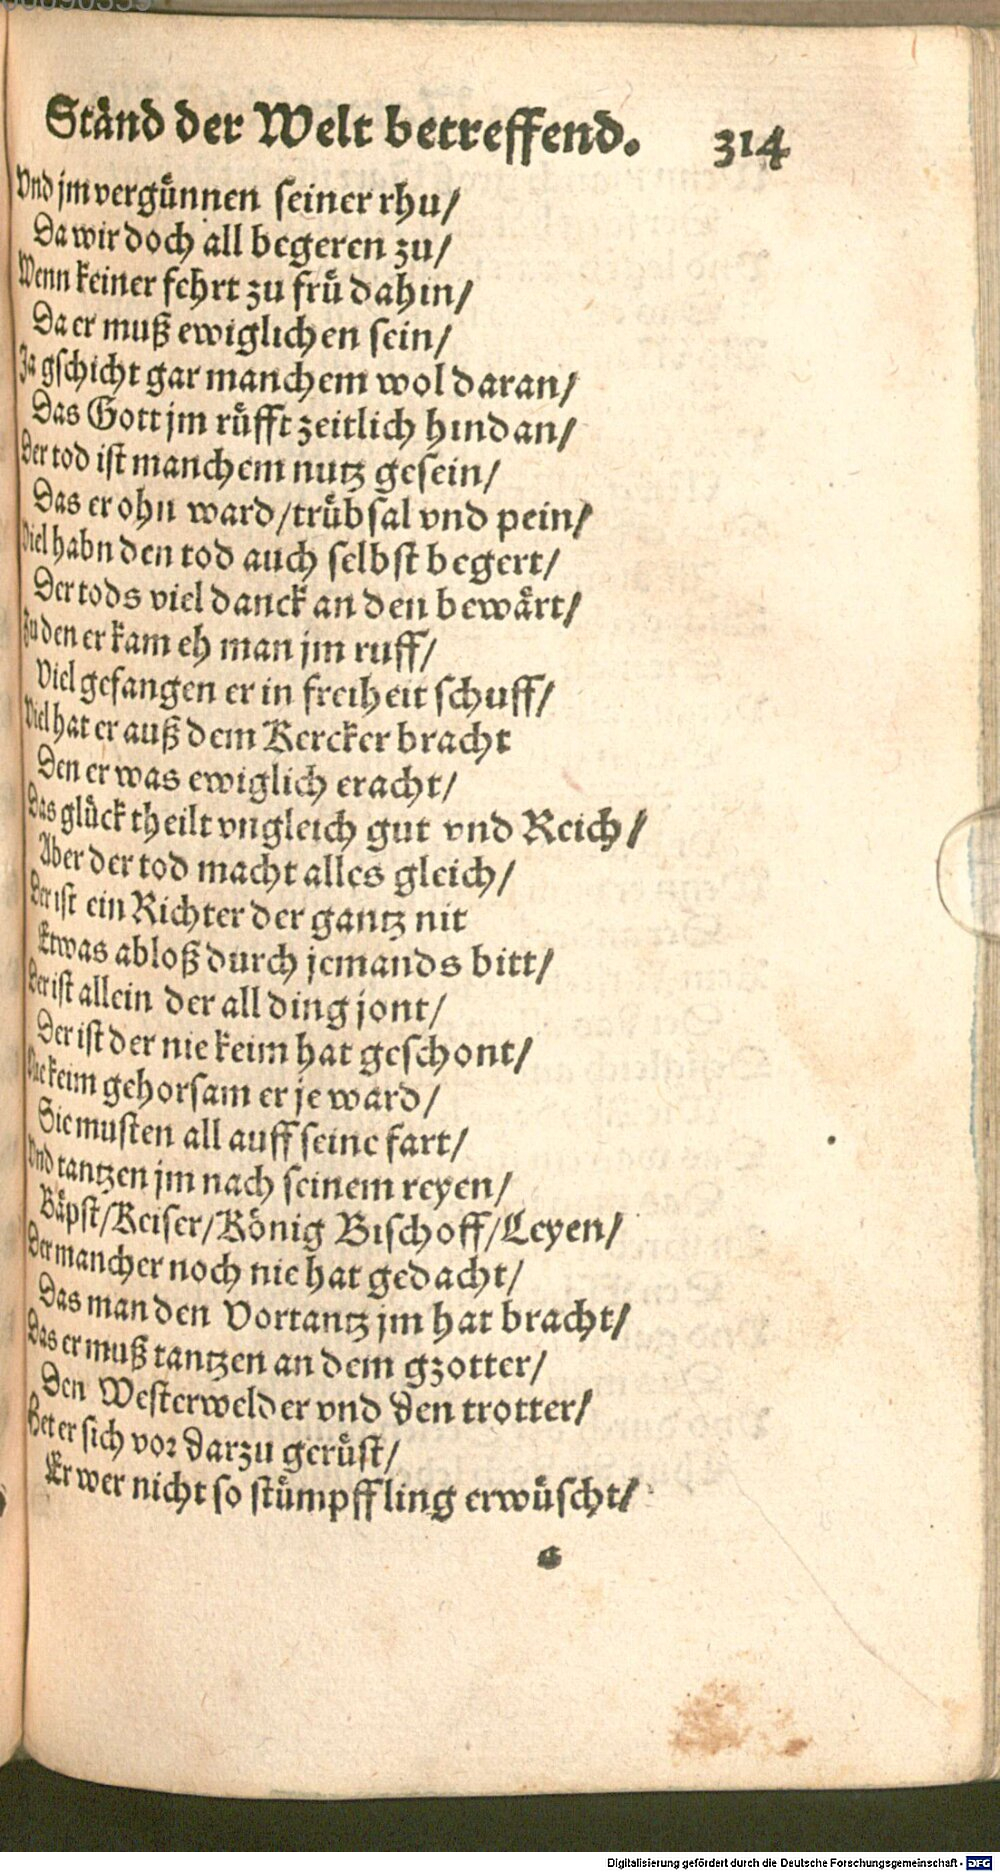 Ständ der Welt betreffend. 314
Vnd jm vergünnen seiner rhu/
Da wir doch all begeren zu/
Wenn keiner fehrt zu frü dahin/
Da er muß ewiglichen sein/
Ja gschicht gar manchem wol daran/
Das Gott jm rüfft zeitlich hindan/
Der tod ist manchem nutz gesein/
Das er ohn ward/trübsal vnd pein/
Viel habn den tod auch selbst begert/
Der tods viel danck an den bewärt/
Zu den er kam eh man jm ruff/
Viel gefangen er in freiheit schuff/
Viel hat er auß dem Kercker bracht
Den er was ewiglich eracht/
Das glück theilt vngleich gut vnd Reich/
Aber der tod macht alles gleich/
Der ist ein Richter der gantz nit
Etwas abloß durch jemands bitt/
Der ist allein der all ding jont/
Der ist der nie keim hat geschont/
keim gehorsam er je ward/
Sie musten all auff seine fart/
Vnd tantzen jm nach seinem reyen/
Bäpst/Keiser/König Bischoff/Leyen/
Der mancher noch nie hat gedacht/
Das man den Vortantz jm hat bracht/
Das er muß tantzen an dem gzotter/
Den Westerwelder vnd den trotter/
Het er sich vor darzu gerüst/
Er wer nicht so stümpffling erwüscht/
Digitalisierung gefördert durch die Deutsche Forschungsgemeinschaft - DFG